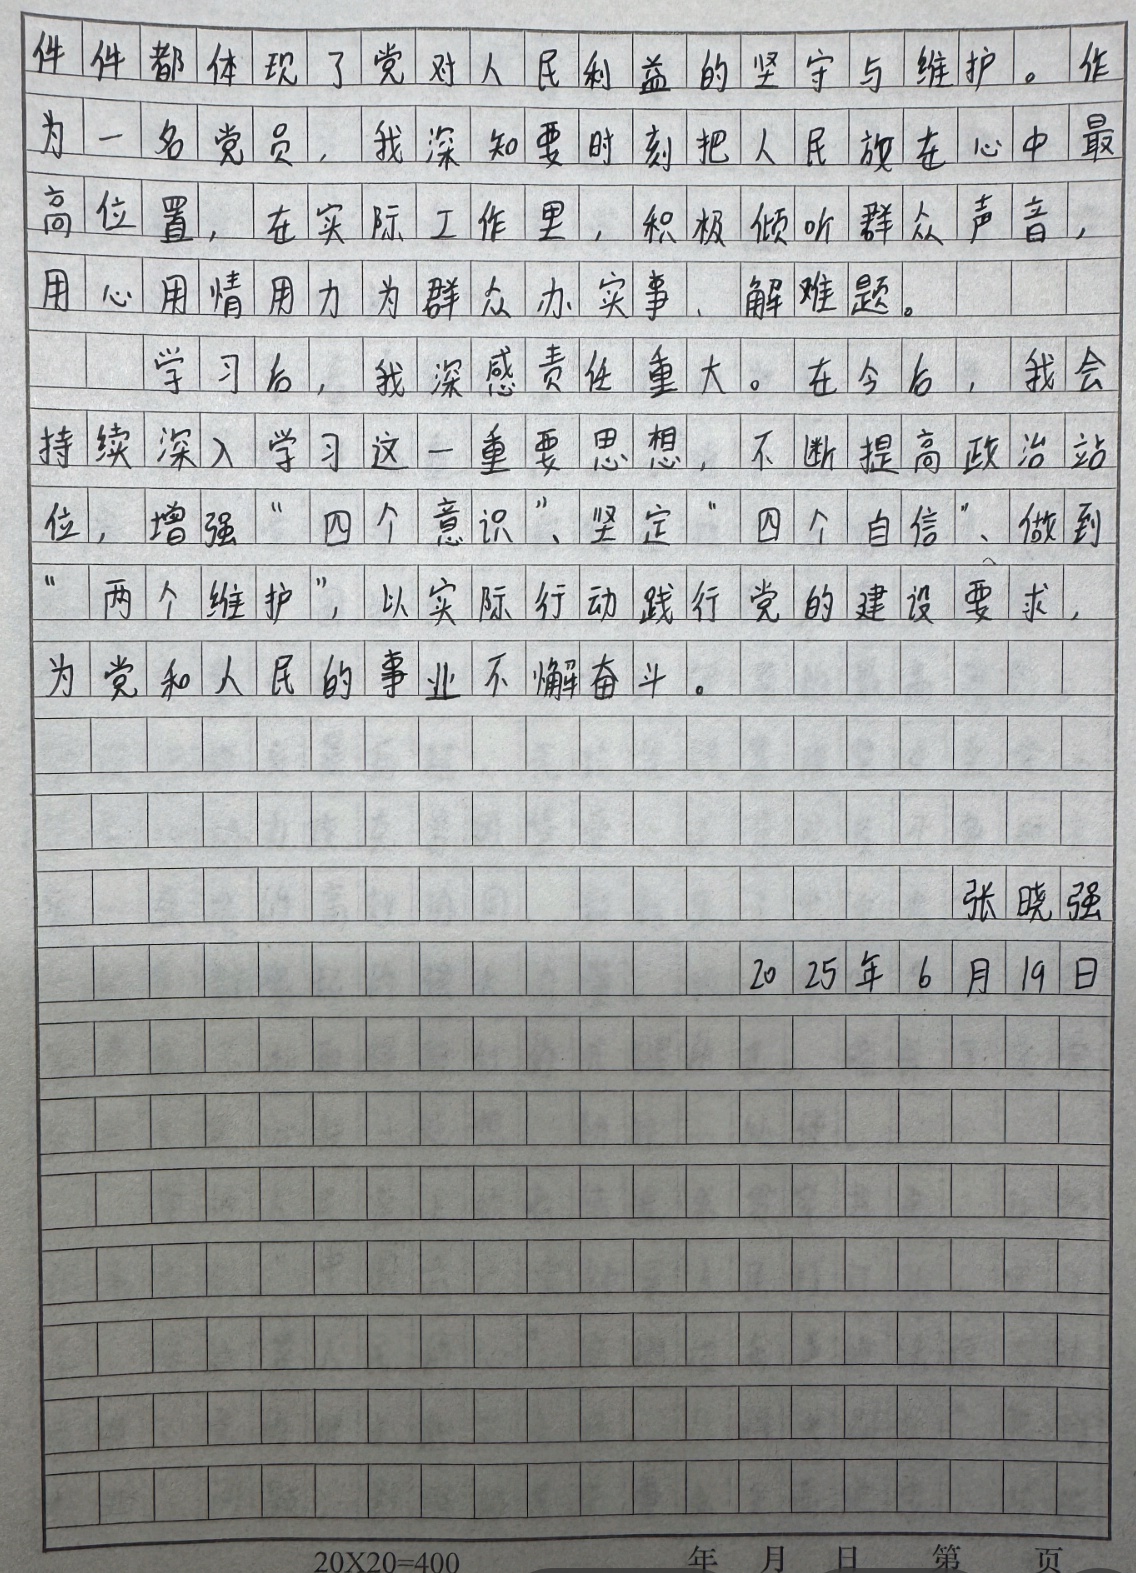 件件都体现了党对人民利益的坚守与维护。作
为一名党员，我深知要时刻把人民放在心中最
高位置，在实际工作里，积极倾听群众声音，
用心用情用力为群众办实事、解难题。
学习后，我深感责任重大。在今后，我会
持续深入学习这一重要思想，不断提高政治站
位，增强“四个意识”、坚定“四个自信”、做到
“两个维护”，以实际行动践行党的建设要求，
为党和人民的事业不懈奋斗。
张晓强
2025年6月19日
20X20=400 年 月 日 第 页